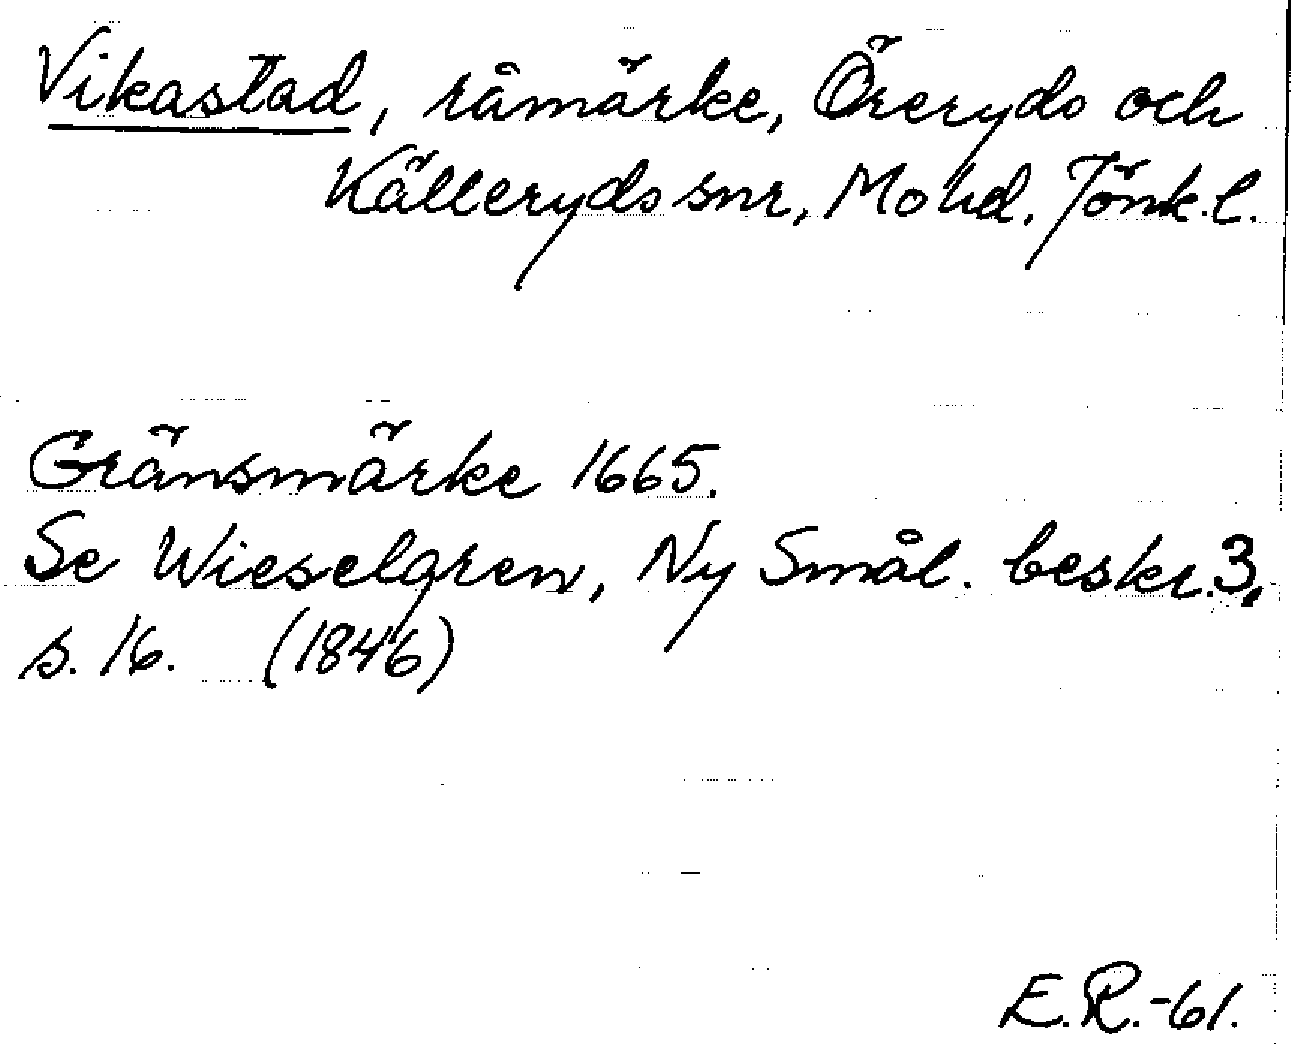 Vikastad, råmärke, Öreryds och
Källeryds snr, Mo hd. Jönk.l.
Gränsmärke 1665.
Se Wieselgren, Ny Smål. beskr.3,
s. 16. (1846)
E.R.-61.